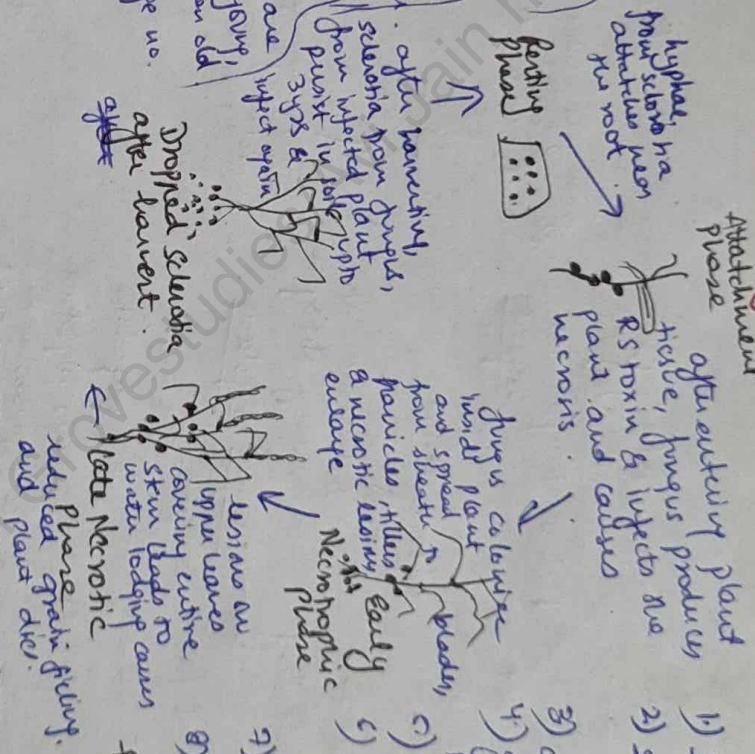 Attatchment
phase
hyphae,
from sclerotia
attatches near
the root.
Resting
phase
after entering plant
tissue, fungus produces
RS toxin & infects the
plant and causes
necrosis.
fungus colonize
inside plant
and spread
from sheath to blades,
panicles, tillers
& necrotic lesions
enlarge
Early
Necrotrophic
phase
lesions on
upper leaves
covering entire
stem leads to
water lodging causes
reduced grain filling.
and plant dies.
Late Necrotic
phase
Dropped sclerotia
after harvest.
after
after harvesting,
sclerotia from fungus,
from infected plant
persist in soil upto
3yrs &
infect again
are
on old
ge no.
1.)
2)
3)
4)
5.)
6)
7)
8)
Grovestudies
Jain